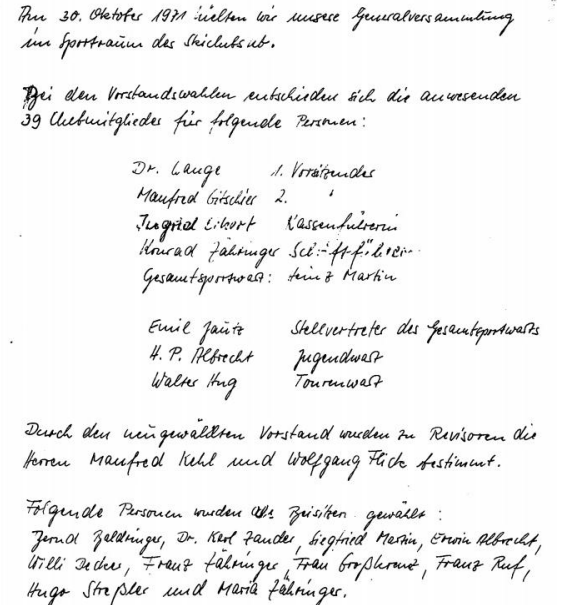 Am 30. Oktober 1971 hielten wir unsere Generalversammlung
im Sportraum des Skiclubs ab.
Bei den Vorstandswahlen entschieden sich die anwesenden
39 Clubmitglieder für folgende Personen:
Dr. Lange 1. Vorsitzender
Manfred Gitschier 2. "
Ingrid Eikort Kassenführerin
Konrad Zähringer Schriftführer
Gesamtsportwart: Heinz Martin
Emil Jautz Stellvertreter des Gesamtsportwarts
H. P. Albrecht Jugendwart
Walter Hug Tourenwart
Durch den neugewählten Vorstand wurden zu Revisoren die
Herren Manfred Kehl und Wolfgang Flick bestimmt.
Folgende Personen wurden als Beisitzer gewählt:
Bernd Baldinger, Dr. Karl Zander, Siegfried Martin, Erwin Albrecht,
Willi Decker, Franz Zähringer, Frau Großkreuz, Franz Ruf,
Hugo Streßler und Maria Zähringer.